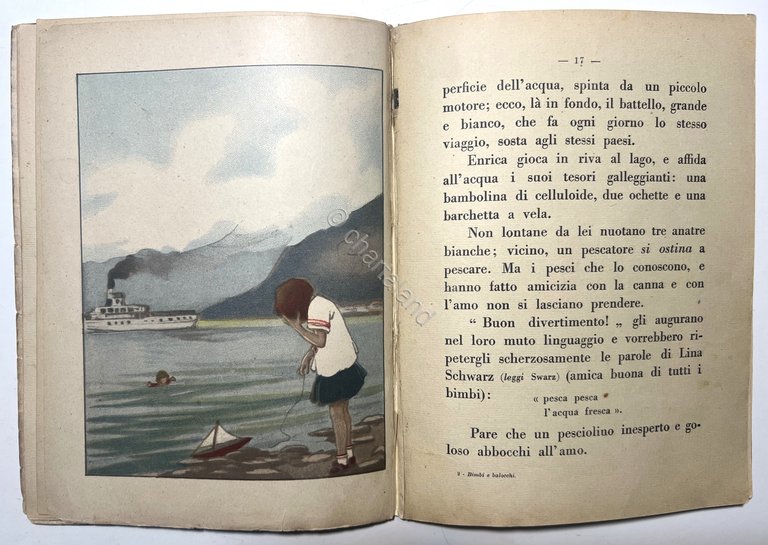 — 17 —
perficie dell'acqua, spinta da un piccolo
motore; ecco, là in fondo, il battello, grande
e bianco, che fa ogni giorno lo stesso
viaggio, sosta agli stessi paesi.
Enrica gioca in riva al lago, e affida
all'acqua i suoi tesori galleggianti: una
bambolina di celluloide, due ochette e una
barchetta a vela.
Non lontane da lei nuotano tre anatre
bianche; vicino, un pescatore si ostina a
pescare. Ma i pesci che lo conoscono, e
hanno fatto amicizia con la canna e con
l'amo non si lasciano prendere.
“ Buon divertimento! „ gli augurano
nel loro muto linguaggio e vorrebbero ri-
petergli scherzosamente le parole di Lina
Schwarz (leggi Swarz) (amica buona di tutti i
bimbi):
« pesca pesca
l'acqua fresca ».
Pare che un pesciolino inesperto e go-
loso abbocchi all'amo.
2 - Bimbi e balocchi.
© charta.land